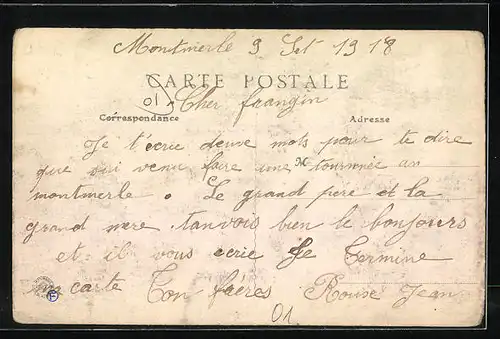 Montmerle 9 Set 1918
CARTE POSTALE
01 Cher frangin
Correspondance Adresse
Je t'écrie deuse mots pour te dire
que sui venu faire une tournnée au
montmerle. Le grand père et la
grand mere t'anvois bien le bonjours
et il vous ecrie Je Termine
ma carte Ton fréres Rouse Jean
01